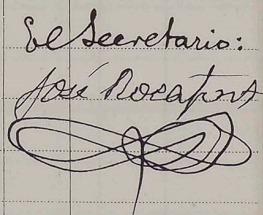 El Secretario:
José Rocafort